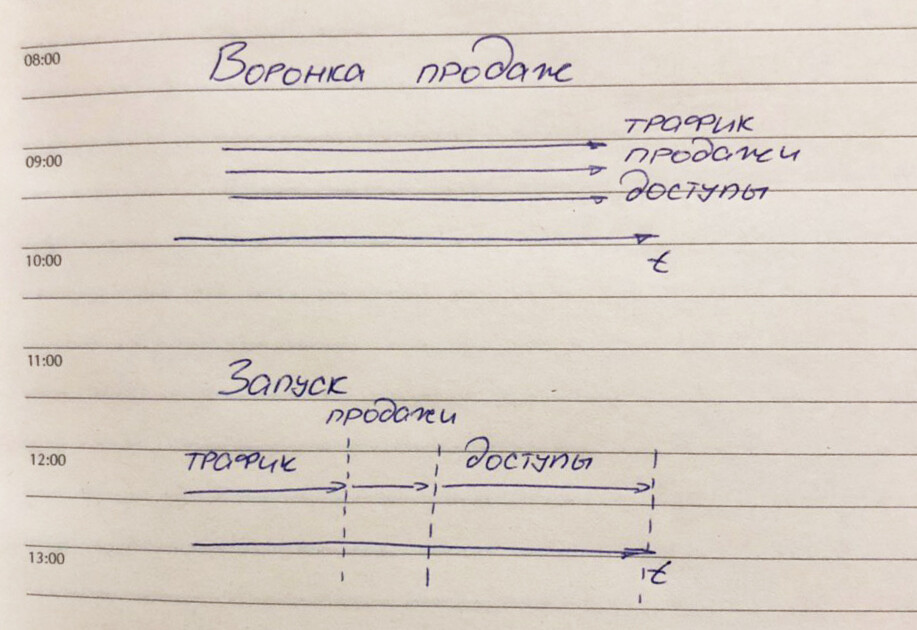 08:00
Воронка продаж
трафик
09:00
продажи
доступы
10:00
t
11:00
Запуск
продажи
12:00
трафик
доступы
13:00
t